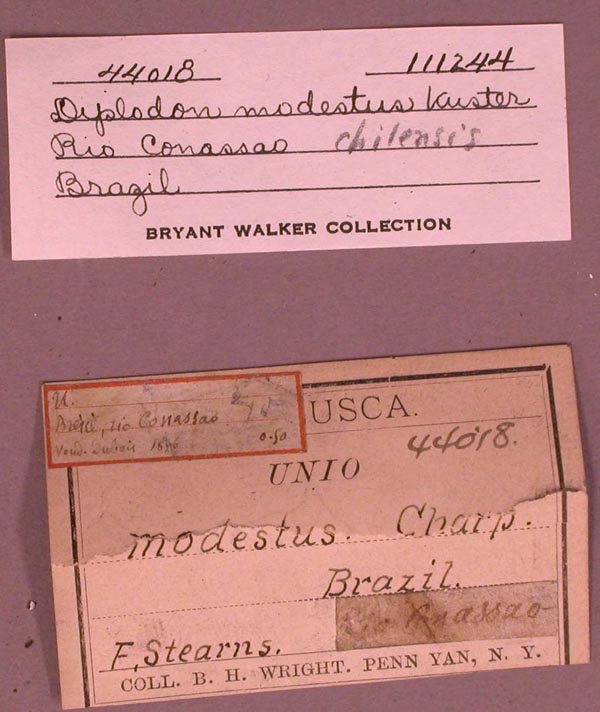 44018 111244
Diplodon modestus Kuster
Rio Conassao chilensis
Brazil
BRYANT WALKER COLLECTION
U.
Brésil, rio Conassao
Vend. Dubois 0.50
USCA.
44018.
UNIO
modestus. Charp.
Brazil.
Rio Conassao
F. Stearns.
COLL. B. H. WRIGHT. PENN YAN, N. Y.